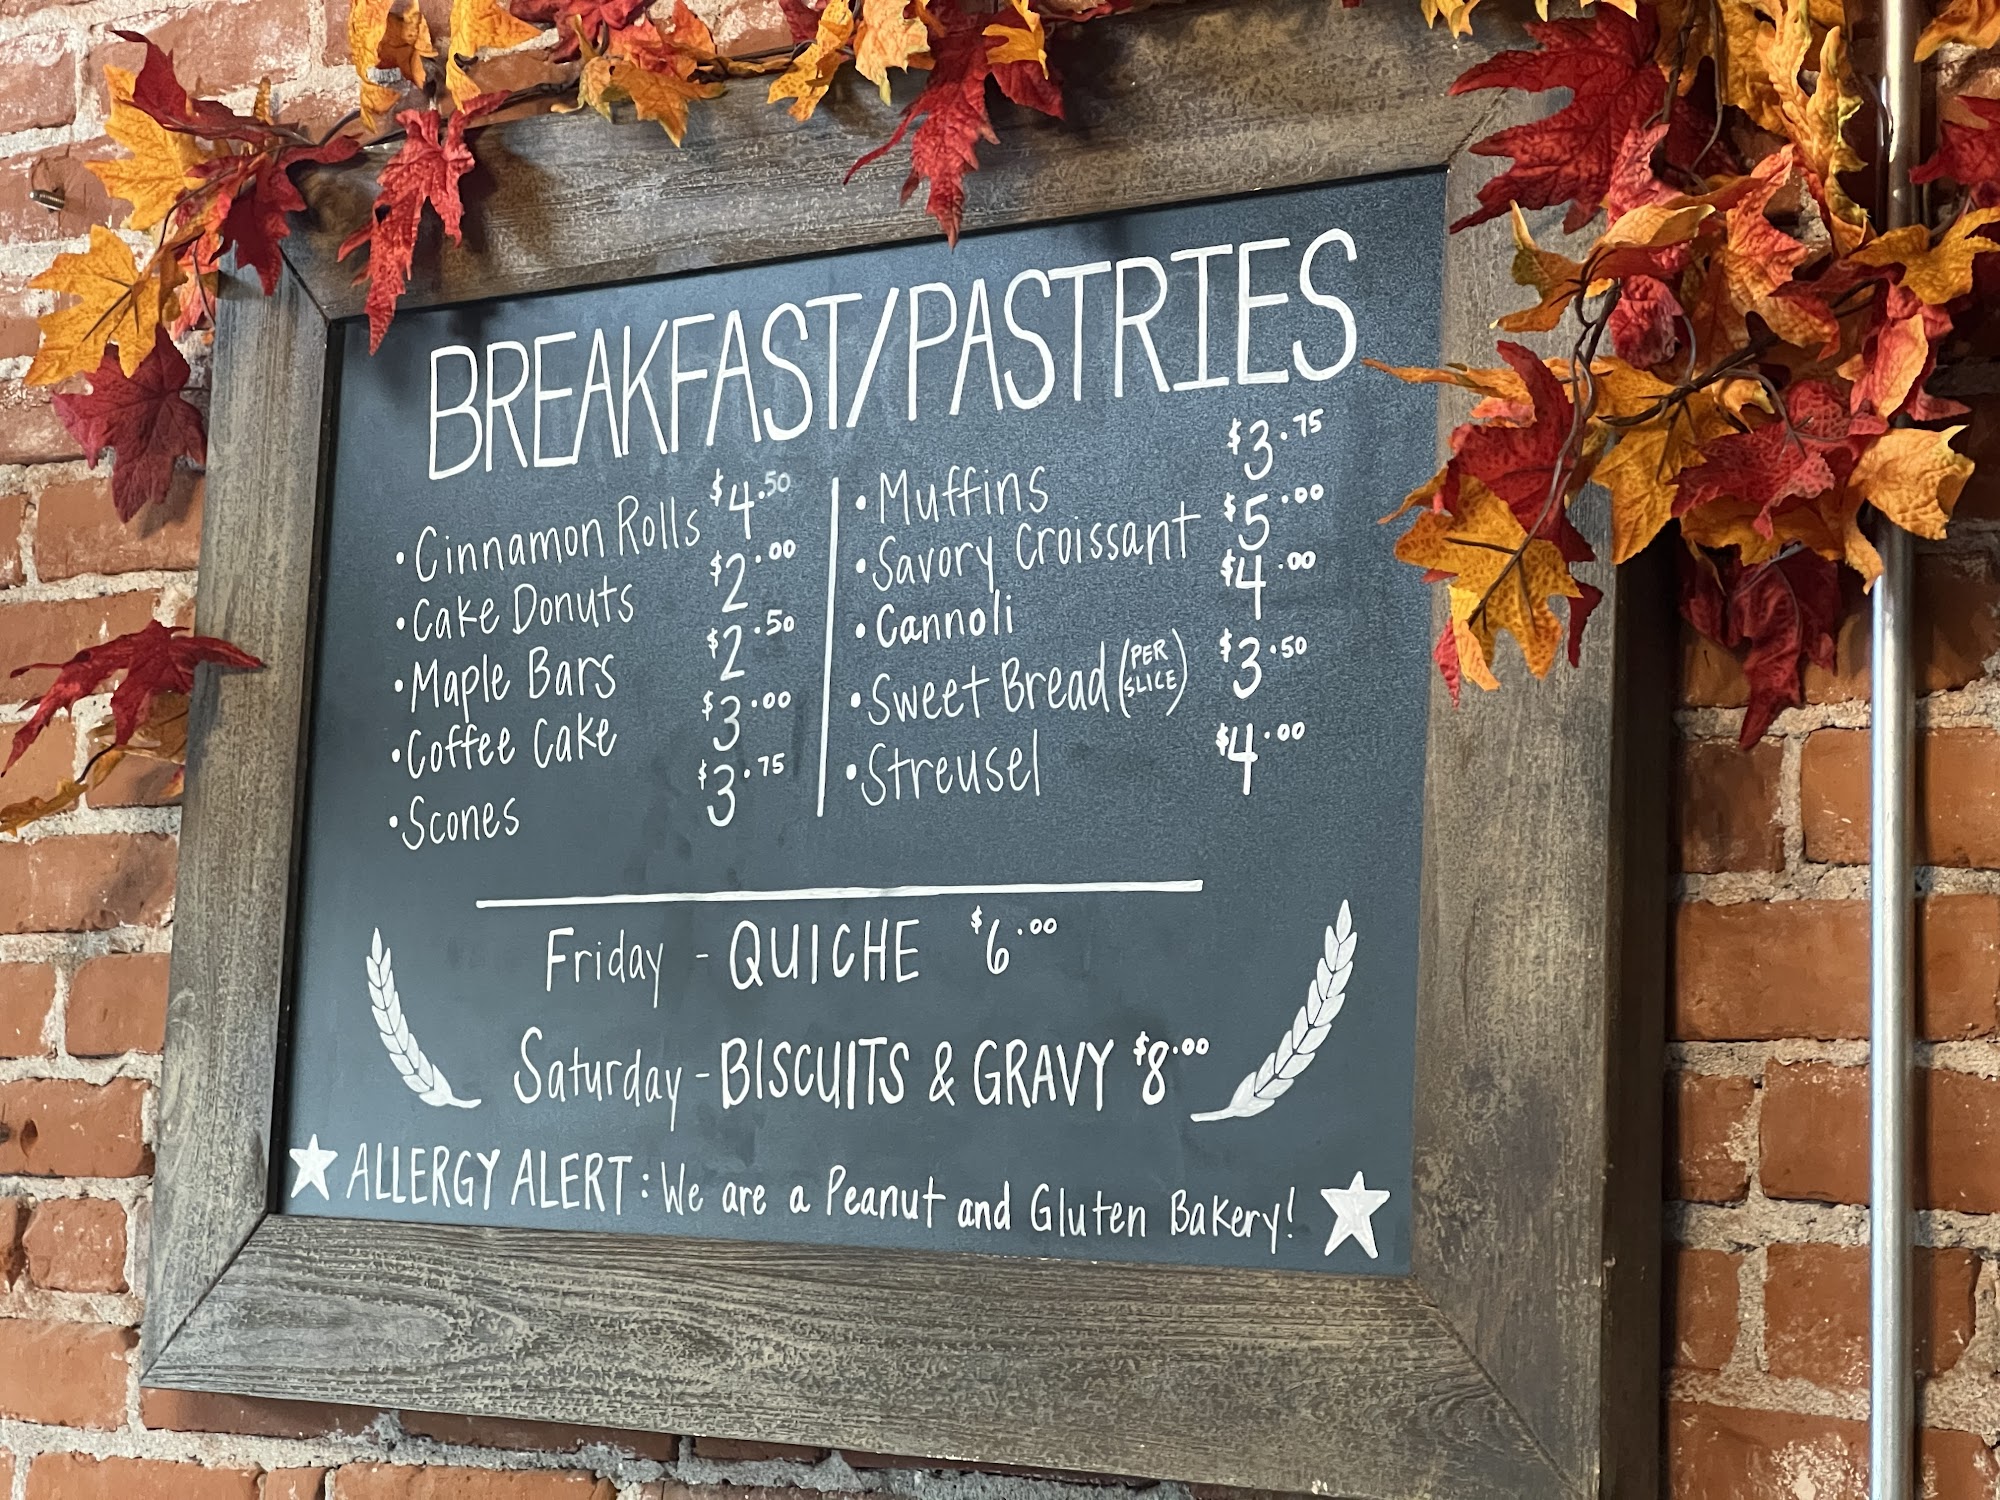 BREAKFAST/PASTRIES
• Cinnamon Rolls $4.50
• Cake Donuts $2.00
• Maple Bars $2.50
• Coffee Cake $3.00
• Scones $3.75
• Muffins $3.75
• Savory Croissant $5.00
• Cannoli $4.00
• Sweet Bread (PER SLICE) $3.50
• Streusel $4.00
Friday - QUICHE $6.00
Saturday - BISCUITS & GRAVY $8.00
ALLERGY ALERT: We are a Peanut and Gluten Bakery!